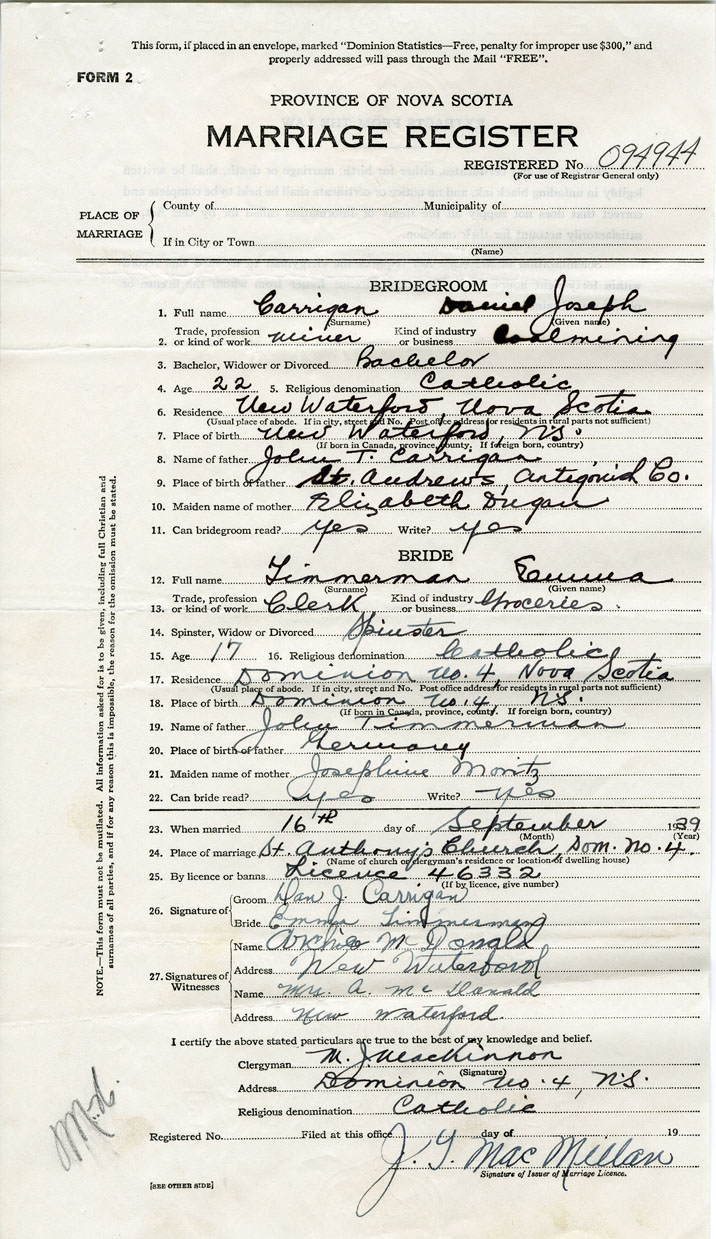 This form, if placed in an envelope, marked "Dominion Statistics—Free, penalty for improper use $300," and
properly addressed will pass through the Mail "FREE".
FORM 2
PROVINCE OF NOVA SCOTIA
MARRIAGE REGISTER
REGISTERED No. 094944
(For use of Registrar General only)
PLACE OF MARRIAGE
County of Municipality of
If in City or Town
(Name)
BRIDEGROOM
1. Full name Carrigan Daniel Joseph
(Surname) (Given name)
2. Trade, profession or kind of work miner Kind of industry or business Coalmining
3. Bachelor, Widower or Divorced Bachelor
4. Age 22 5. Religious denomination Catholic
6. Residence New Waterford, Nova Scotia
(Usual place of abode. If in city, street and No. Post office address for residents in rural parts not sufficient)
7. Place of birth New Waterford, N.S.
(If born in Canada, province, county. If foreign born, country)
8. Name of father John T. Carrigan
9. Place of birth of father St. Andrews, Antigonish Co.
10. Maiden name of mother Elizabeth Dugan
11. Can bridegroom read? yes Write? yes
BRIDE
12. Full name Timmerman Emma
(Surname) (Given name)
13. Trade, profession or kind of work Clerk Kind of industry or business Groceries.
14. Spinster, Widow or Divorced Spinster
15. Age 17 16. Religious denomination Catholic
17. Residence Dominion No. 4, Nova Scotia
(Usual place of abode. If in city, street and No. Post office address for residents in rural parts not sufficient)
18. Place of birth Dominion No. 4, N.S.
(If born in Canada, province, county. If foreign born, country)
19. Name of father John Timmerman
20. Place of birth of father Germany
21. Maiden name of mother Josephine Moritz
22. Can bride read? yes Write? yes
23. When married 16th day of September 1939
(Month) (Year)
24. Place of marriage St. Anthony's Church, Dom. No. 4.
(Name of church or clergyman's residence or location of dwelling house)
25. By licence or banns Licence 46332
(If by licence, give number)
26. Signature of
Groom Dan J. Carrigan
Bride Emma Timmerman
27. Signatures of Witnesses
Name Archie McDonald
Address New Waterford
Name Mrs. A. McDonald
Address New Waterford.
I certify the above stated particulars are true to the best of my knowledge and belief.
Clergyman M. J. MacKinnon
(Signature)
Address Dominion No. 4, N.S.
Religious denomination Catholic
Registered No. Filed at this office day of 19
J. Y. MacMillan
Signature of Issuer of Marriage Licence.
[SEE OTHER SIDE]
NOTE.—This form must not be mutilated. All information asked for is to be given, including full Christian and
surnames of all parties, and if for any reason this is impossible, the reason for the omission must be stated.